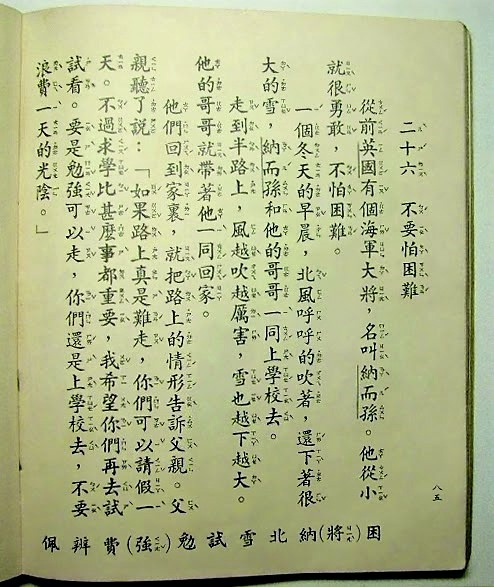 二十六　不要怕困難
從前英國有個海軍大將，名叫納而孫。他從小
就很勇敢，不怕困難。
一個冬天的早晨，北風呼呼的吹著，還下著很
大的雪，納而孫和他的哥哥一同上學校去。
走到半路上，風越吹越厲害，雪也越下越大。
他的哥哥就帶著他一同回家。
他們回到家裏，就把路上的情形告訴父親。父
親聽了說：「如果路上真是難走，你們可以請假一
天。不過求學比甚麼事都重要，我希望你們再去試
試看。要是勉強可以走，你們還是上學校去，不要
浪費一天的光陰。」
八五
困(將)納北雪試勉(強)費辨佩